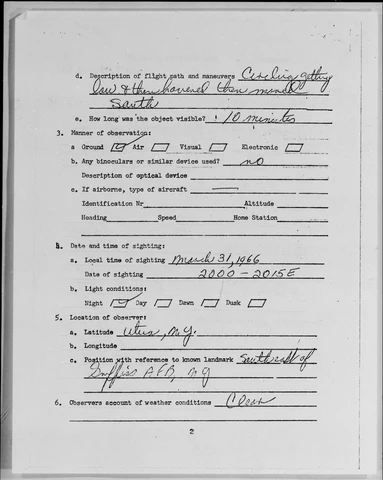 d. Description of flight path and maneuvers Circling getting
low & then hovered then moved
South
e. How long was the object visible? : 10 minutes
3. Manner of observation:
a Ground Air Visual Electronic
b. Any binoculars or similar device used? no
Description of optical device
c. If airborne, type of aircraft
Identification Nr Altitude
Heading Speed Home Station
4. Date and time of sighting:
a. Local time of sighting March 31, 1966
Date of sighting 2000 - 2015E
b. Light conditions:
Night Day Dawn Dusk
5. Location of observer:
a. Latitude Utica, N.Y.
b. Longitude
c. Position with reference to known landmark Southeast of
Griffiss AFB, NY
6. Observers account of weather conditions Clear
2